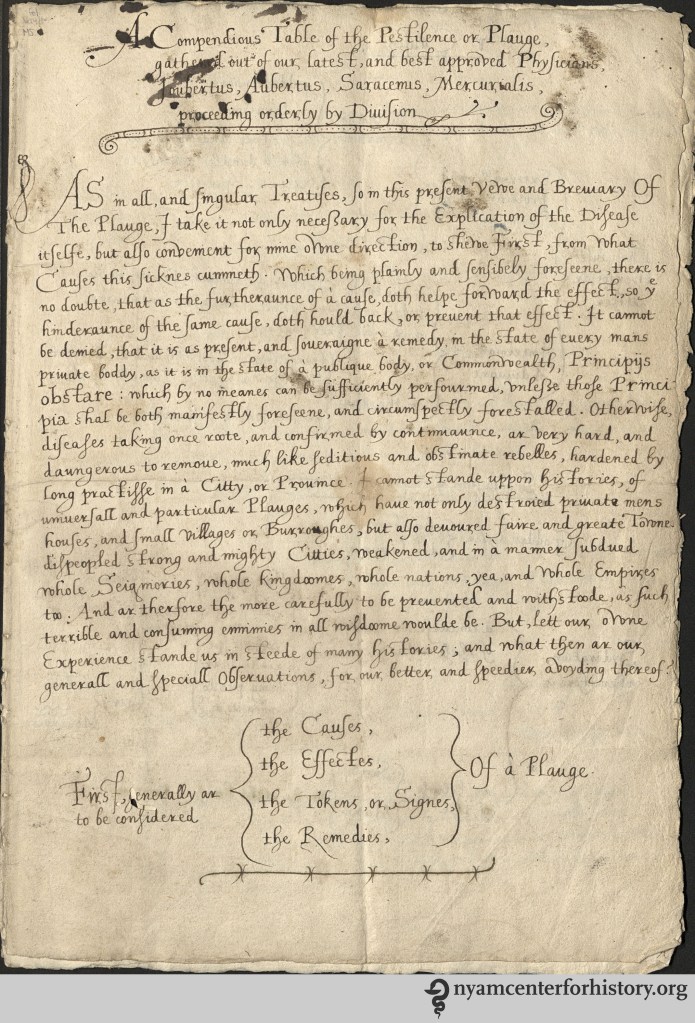 A Compendious Table of the Pestilence or Plauge,
gathered out of our latest, and best approved Physicians
Ioubertus, Aubertus, Saracenus, Mercurialis,
proceeding orderly by Diuision
AS in all, and singular Treatises, so in this present Vewe and Breuiary Of
The Plauge, I take it not only necessary for the Explication of the Disease
itselfe, but also convenient for mine owne direction, to shewe First, from what
Causes this sicknes cummeth. Which being plainly and sensibely foreseene, there is
no doubte, that as the furtheraunce of à cause, doth helpe forward the effect, so yᵉ
hinderaunce of the same cause, doth hould back, or prevent that effect. It cannot
be denied, that it is as present, and soueraigne à remedy, in the state of euery mans
priuate boddy, as it is in the state of à publique body, or Commonwealth, Principijs
obstare: which by no meanes can be sufficiently perfourmed, vnlesse those Princi-
pia shal be both manifestly foreseene, and circumspectly forestalled. Otherwise,
diseases taking once roote, and confirmed by continuaunce, ar very hard, and
daungerous to remoue, much like seditious and obstinate rebelles, hardened by
long practisse in à Citty, or Prouince. I cannot stande uppon histories, of
uniuersall and particular Plauges, which haue not only destroied priuate mens
houses, and small villages or Burroughes, but also deuoured faire and greate Towne
dispeopled strong and mighty Citties, weakened, and in à manner subdued
whole Seigniories, whole kingdoomes, whole nations, yea, and whole Empires
too: And ar therfore the more carefully to be preuented and withstoode, as such
terrible and consuming ennimies in all wisdoome woulde be. But, lett our owne
Experience stande us in steede of many histories; and what then ar our
generall and speciall Obseruations, for our better and speedier avoyding thereof?
First, generally ar
to be considered
the Causes,
the Effectes,
the Tokens, or Signes,
the Remedies,
Of à Plauge.
nyamcenterforhistory.org